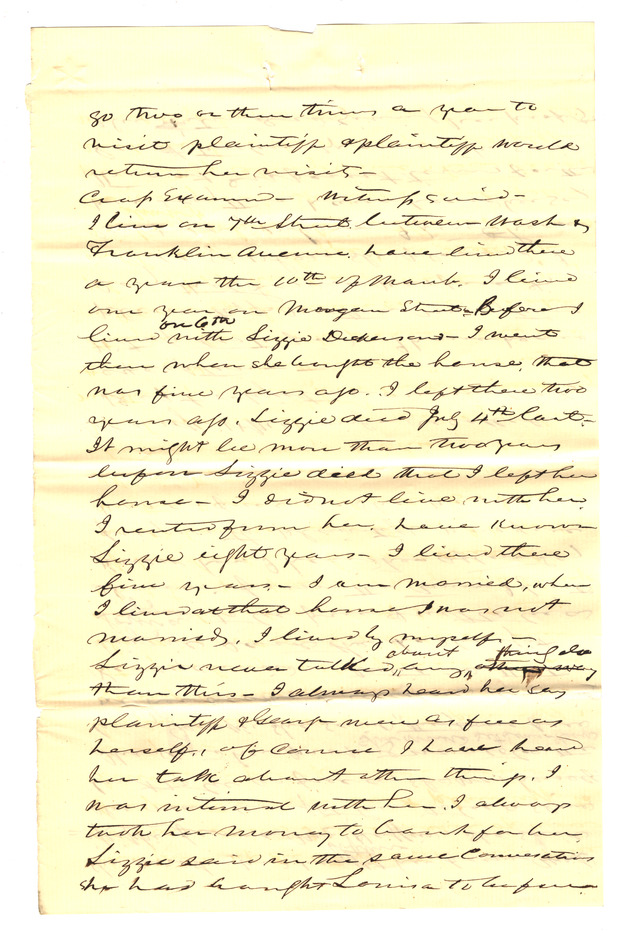 go two or three times a year to
visit plaintiff & plaintiff would
return her visits –
Cross Examd – Witness said –
I live on 7th Street between Wash &
Franklin Avenue. have lived there
a year the 10th of March. I lived
one year on Morgan Street – Before I
lived on 6th with Lizzie Dickerson – I went
there when she bought the house, that
was five years ago. I left there two
years ago. Lizzie died July 4th last –
It might be more than two years
before Lizzie died that I left her
house – I did not live with her
I rented from her. have known
Lizzie eight years – I lived there
five years – I am married, when
I lived at that house I was not
married. I lived by myself –
Lizzie never talked about any thing else
than this – I always heard her say
plaintiff & George were as free as
herself, of course I have heard
her talk about other things. I
was intimate with her. I always
took her money to bank for her
Lizzie said in the same conversation
she had bought Louisa to be free